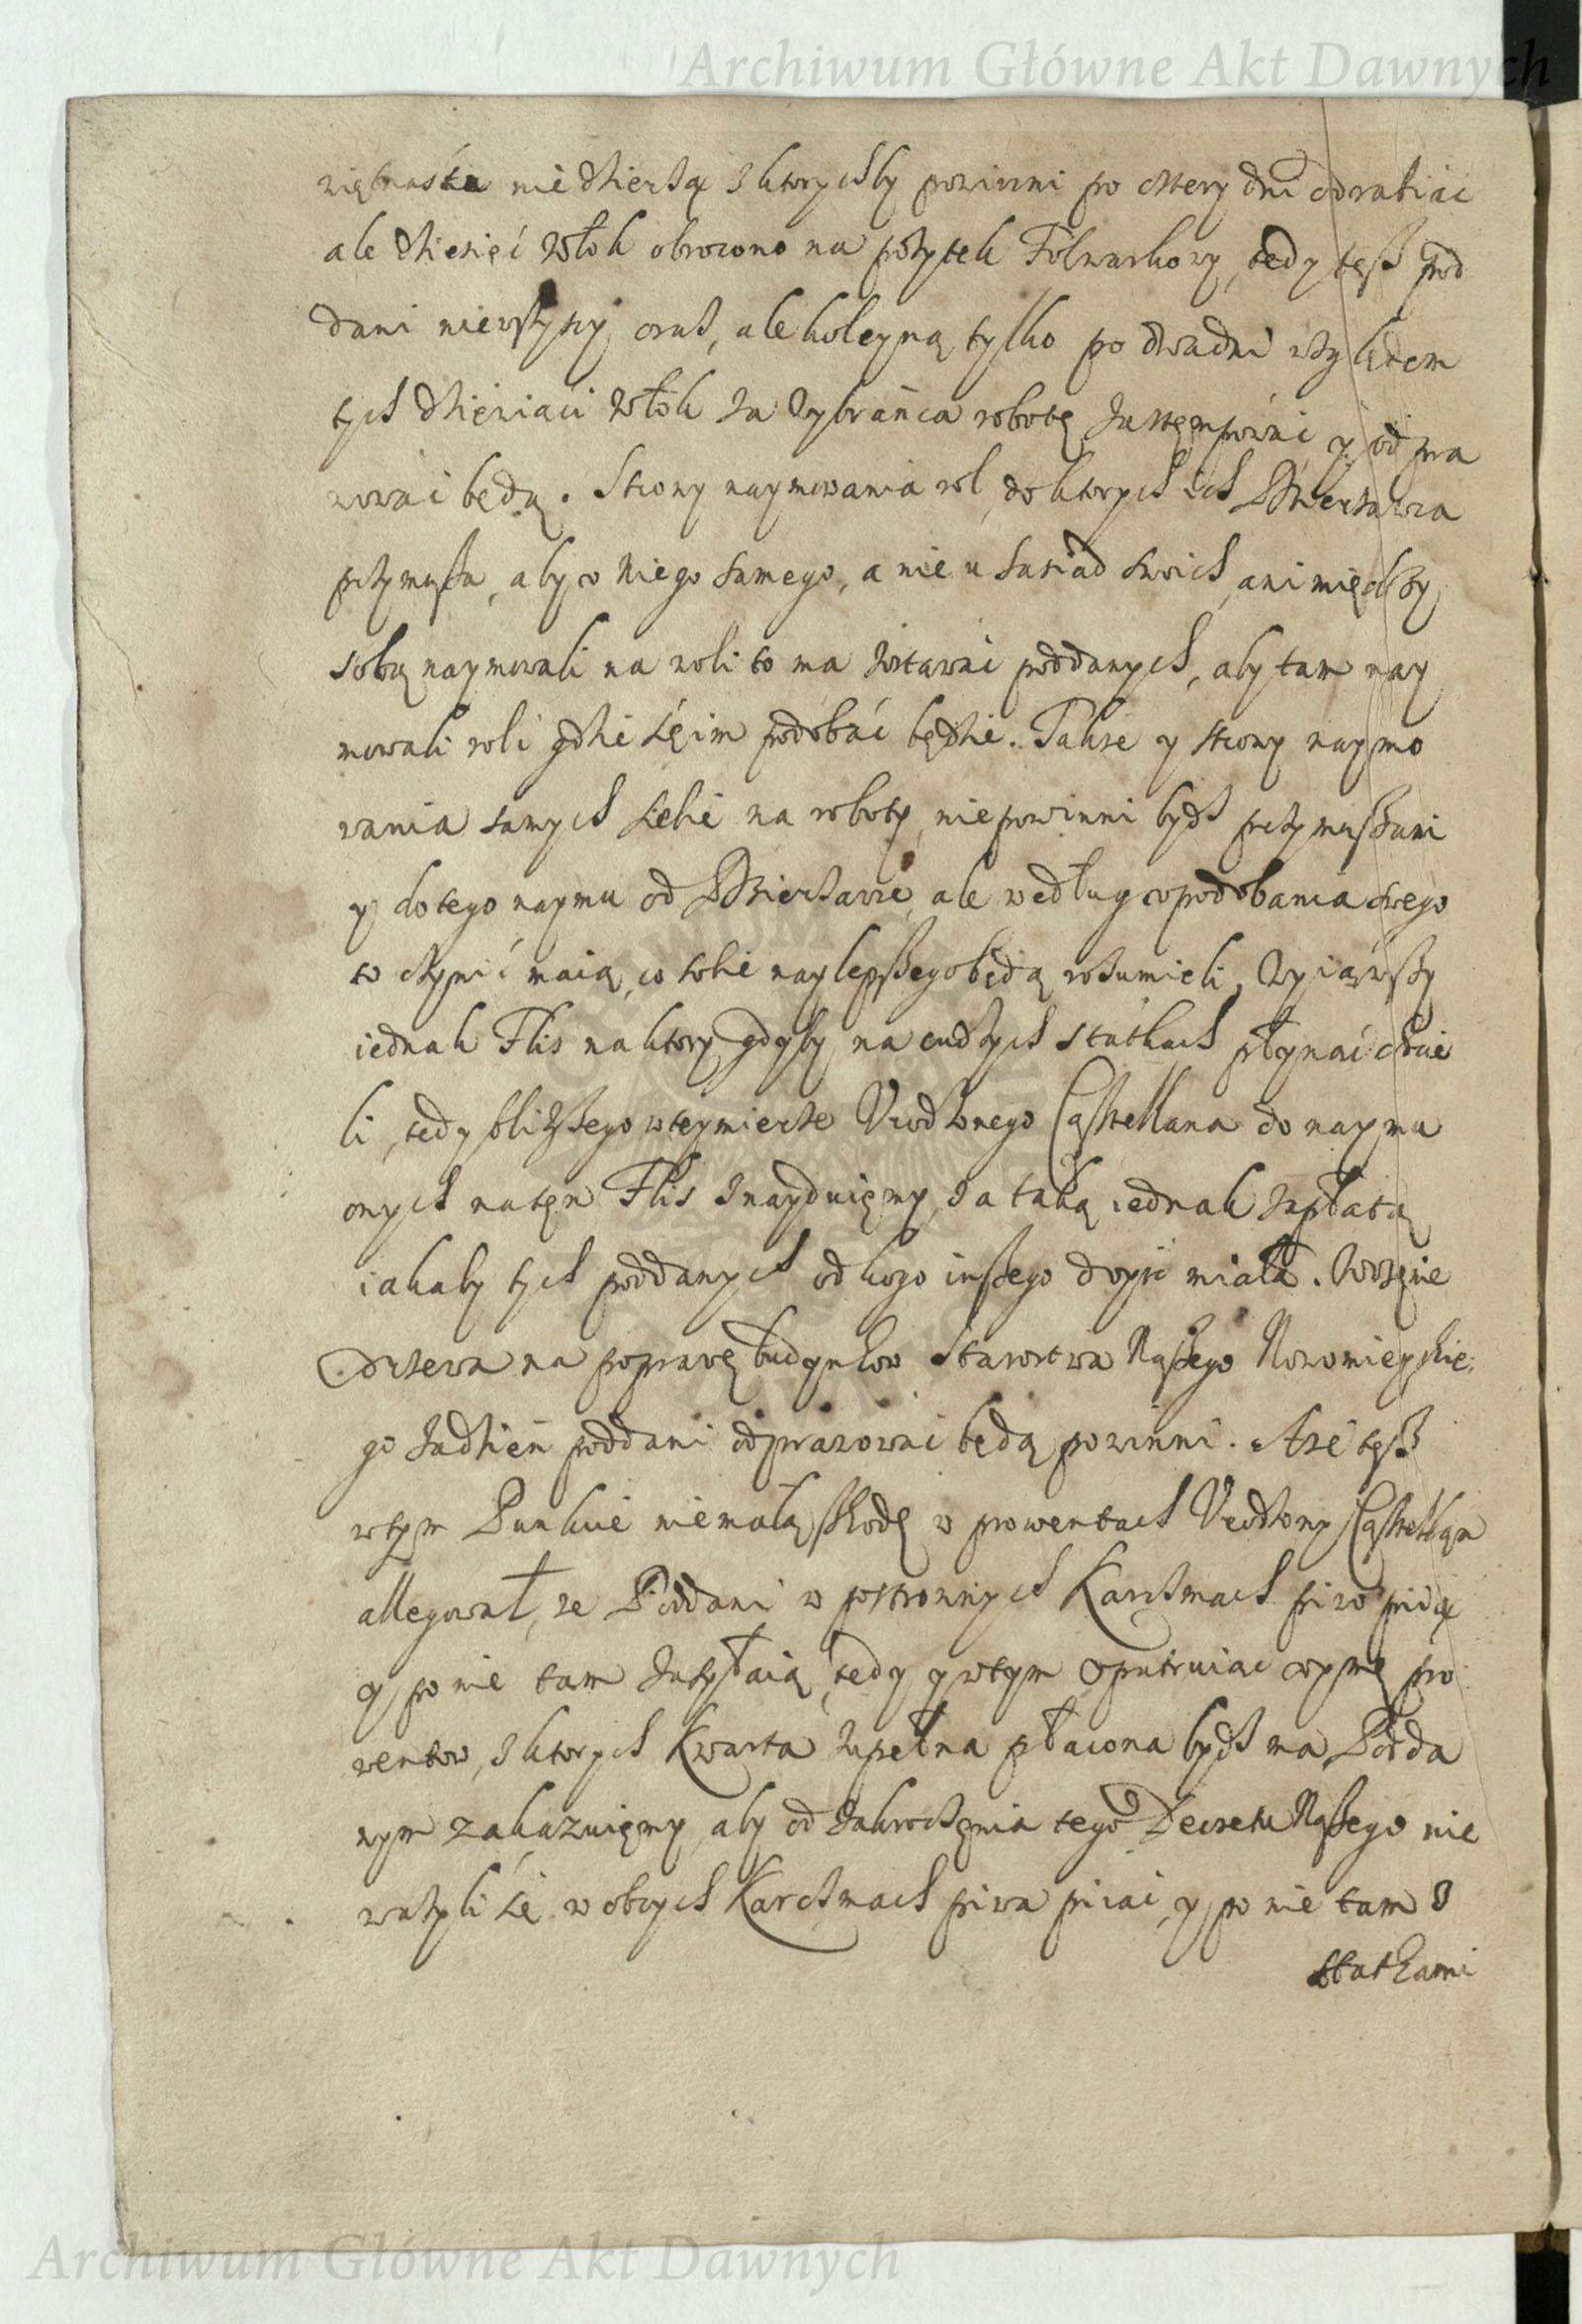 Archiwum Główne Akt Dawnych
więtnaście nie dzierżą z ktorychby powinni po cztery dni odrabiac
ale dziesięć włok obrocono na pożytek Folwarkowy, tedy tesz pod
dani niewszyscy oraz, ale koleyną tylko po dwadni względem
tych dziesiąci włok za Wybrańca robotę zastempować y odpra
wować będą. Strony naymowania rol, do ktorych ich Dzierżawca
przymusza, aby v niego samego, a nie u sasiad swoich, ani między
sobą naymowali na woli to ma zostawać poddanych, aby tam nay
mowali roli gdzie się im podobać będzie. Takze y strony naymo
wania samych siebie na roboty, niepowinni bydz przymuszani
y do tego naymu od Dzierżawce, ale według vpodobania swego
to czynić maią, co sobie naylepszego będą rozumieli, Wyiąwszy
iednak Flis na ktory gdyby na cudzych statkach płynąć chcie
li, tedy bliższego wteymierze Vrodzonego Castellana do naymu
onych na ten Flis znayduiemy, za taką iednak zapłatą
iakaby tych poddanych od kogo inszego doyść miała. Wożenie
drzewa na poprawę budynkow Starostwa Naszego Nowomieyskie
go zadzień poddani odprawować będą powinni. A że tesz
wtym Punkcie niemałą szkodę w prowentach Vrodzony Castellan
allegował, ze Poddani w postronnych Karczmach piwo piią
y po nie tam zasyłaią, tedy y wtym opatruiac vymę pro
wentow, z ktorych Kwarta zupełna płacona bydz ma Podda
nym zakazuiemy, aby od zakroczenia tego Decretu Naszego nie
wazyli się w obcych Karczmach piwa piiać, y po nie tam z
statkami
Archiwum Główne Akt Dawnych